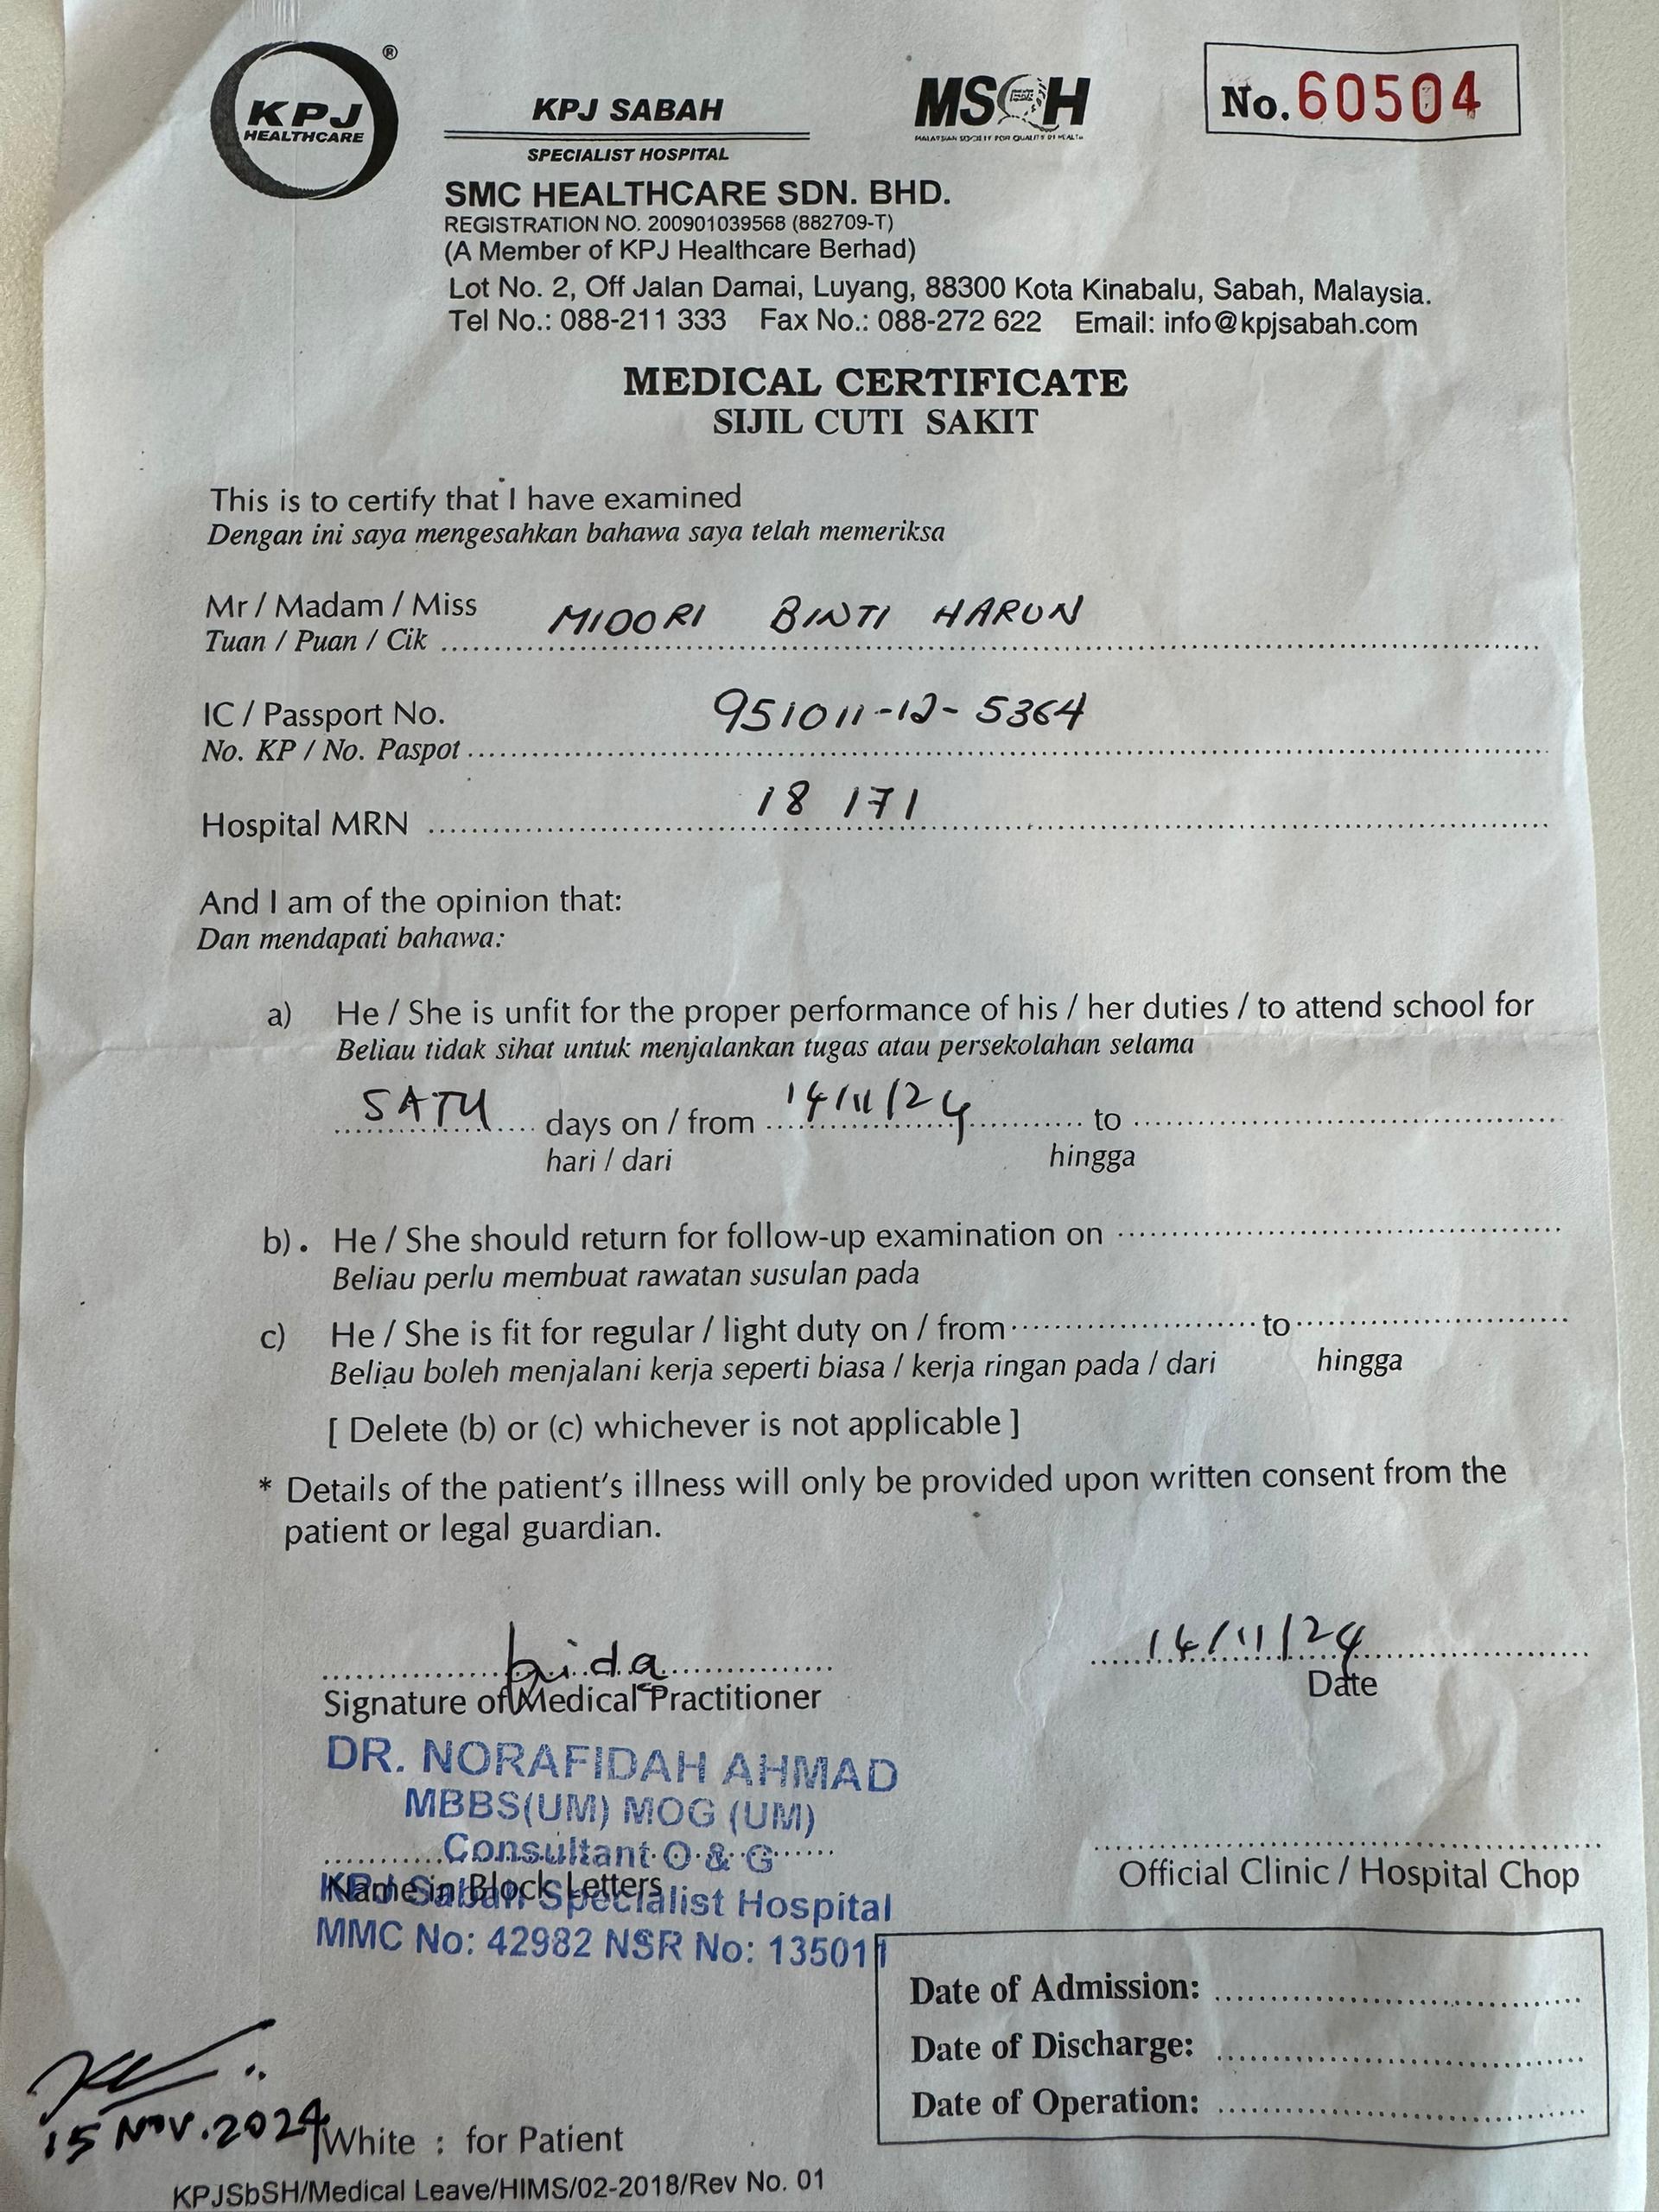 KPJ
HEALTHCARE
®
KPJ SABAH
SPECIALIST HOSPITAL
MSQH
MALAYSIAN SOCIETY FOR QUALITY IN HEALTH
No. 60504
SMC HEALTHCARE SDN. BHD.
REGISTRATION NO. 200901039568 (882709-T)
(A Member of KPJ Healthcare Berhad)
Lot No. 2, Off Jalan Damai, Luyang, 88300 Kota Kinabalu, Sabah, Malaysia.
Tel No.: 088-211 333 Fax No.: 088-272 622 Email: info@kpjsabah.com
MEDICAL CERTIFICATE
SIJIL CUTI SAKIT
This is to certify that I have examined
Dengan ini saya mengesahkan bahawa saya telah memeriksa
Mr / Madam / Miss MIDORI BINTI HARUN
Tuan / Puan / Cik
IC / Passport No. 951011-12-5364
No. KP / No. Paspot
Hospital MRN 18 171
And I am of the opinion that:
Dan mendapati bahawa:
a) He / She is unfit for the proper performance of his / her duties / to attend school for
Beliau tidak sihat untuk menjalankan tugas atau persekolahan selama
SATU days on / from 14/11/24 to
hari / dari hingga
b). He / She should return for follow-up examination on
Beliau perlu membuat rawatan susulan pada
c) He / She is fit for regular / light duty on / from to
Beliau boleh menjalani kerja seperti biasa / kerja ringan pada / dari hingga
[ Delete (b) or (c) whichever is not applicable ]
* Details of the patient's illness will only be provided upon written consent from the
patient or legal guardian.
14/11/24
Signature of Medical Practitioner Date
DR. NORAFIDAH AHMAD
MBBS(UM) MOG (UM)
Consultant O & G
Name in Block Letters Official Clinic / Hospital Chop
KPJ Sabah Specialist Hospital
MMC No: 42982 NSR No: 135011
Date of Admission:
Date of Discharge:
Date of Operation:
15 Nov. 2024
White : for Patient
KPJSbSH/Medical Leave/HIMS/02-2018/Rev No. 01